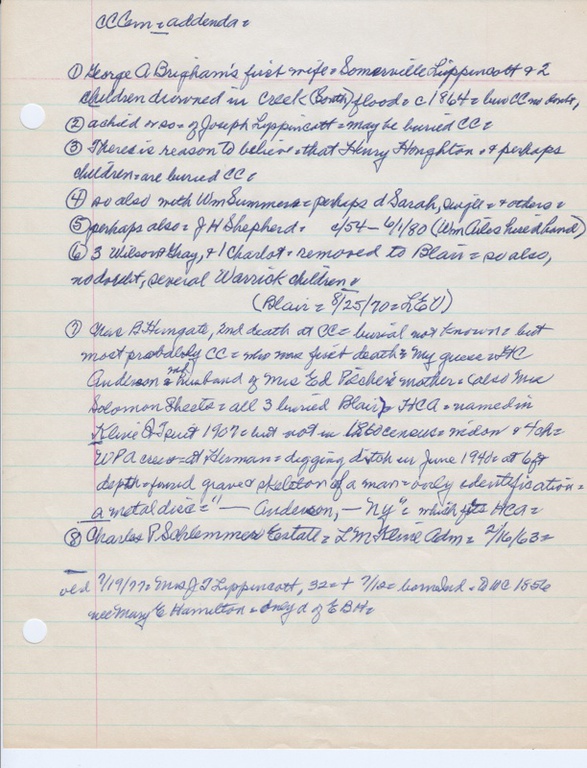 CCCem = addenda =
① George A Brigham's first wife = Somerville Lippincott & 2
children drowned in creek (South) flood = c 1864 = bur CC no doubt,
② a child or so = of Joseph Lippincott = may be buried CC =
③ There is reason to believe = that Henry Houghton = & perhaps
children = are buried CC =
④ so also with Wm Summers = perhaps d Sarah, = & others =
⑤ perhaps also = J H Shepherd = c/54 – 6/1/80 (Wm Ailes hired hand)
⑥ 3 Wilson & Gray, & 1 Charlot = removed to Blair = so also,
no doubt, several Warrick children =
(Blair = 8/25/70 = LEU)
⑦ Chas B Hungate, 2nd death at CC = burial not known = but
most probably CC = who was first death = My guess = HC
Anderson = husband of Mrs Ed mother = (also Mrs
Solomon Sheets = all 3 buried Blair) HCA = named in
Kline Q T suit 1907 = but not in 1860 census = widow & 4 ch =
WPA crew = at Herman = digging ditch in June 1940 = at 6 ft
depth = found grave & skeleton of a man = only identification =
a metal disc = "— Anderson, — Ny" = which fits HCA =
⑧ Charles P Schlemmer Estate = L M Kline Adm = 2/16/63 =
ved 7/19/77 = Mrs J T Lippincott, 32 = + 7/12 = born Ind = a WC 1856
nee Mary E Hamilton = only d of E B H =